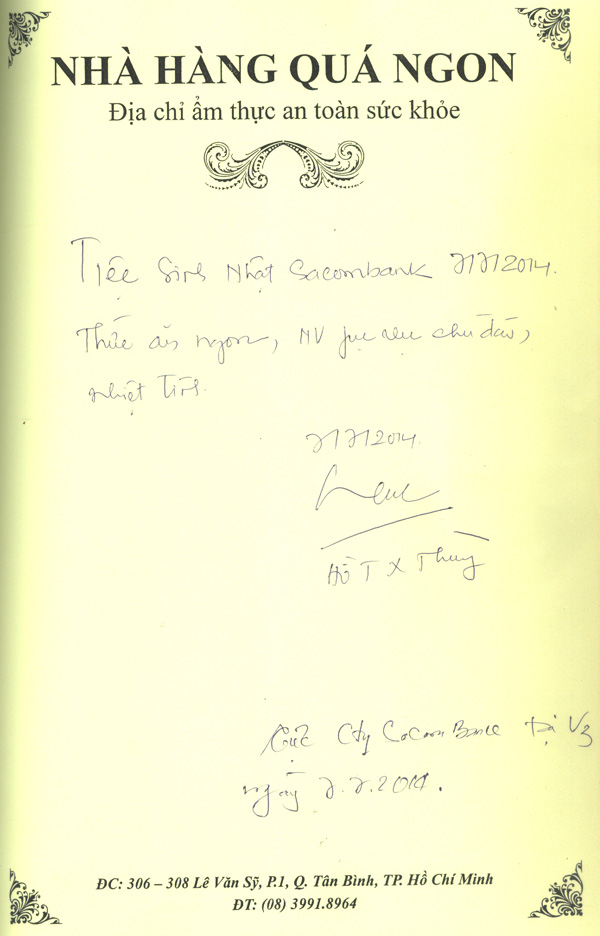 NHÀ HÀNG QUÁ NGON
Địa chỉ ẩm thực an toàn sức khỏe
Tiệc Sinh Nhật Sacombank 7/7/2014.
Thức ăn ngon, NV phục vụ chu đáo,
nhiệt tình.
7/7/2014.
Hồ T X Thùy
Cty
ngày 7.7.2014.
ĐC: 306 – 308 Lê Văn Sỹ, P.1, Q. Tân Bình, TP. Hồ Chí Minh
ĐT: (08) 3991.8964